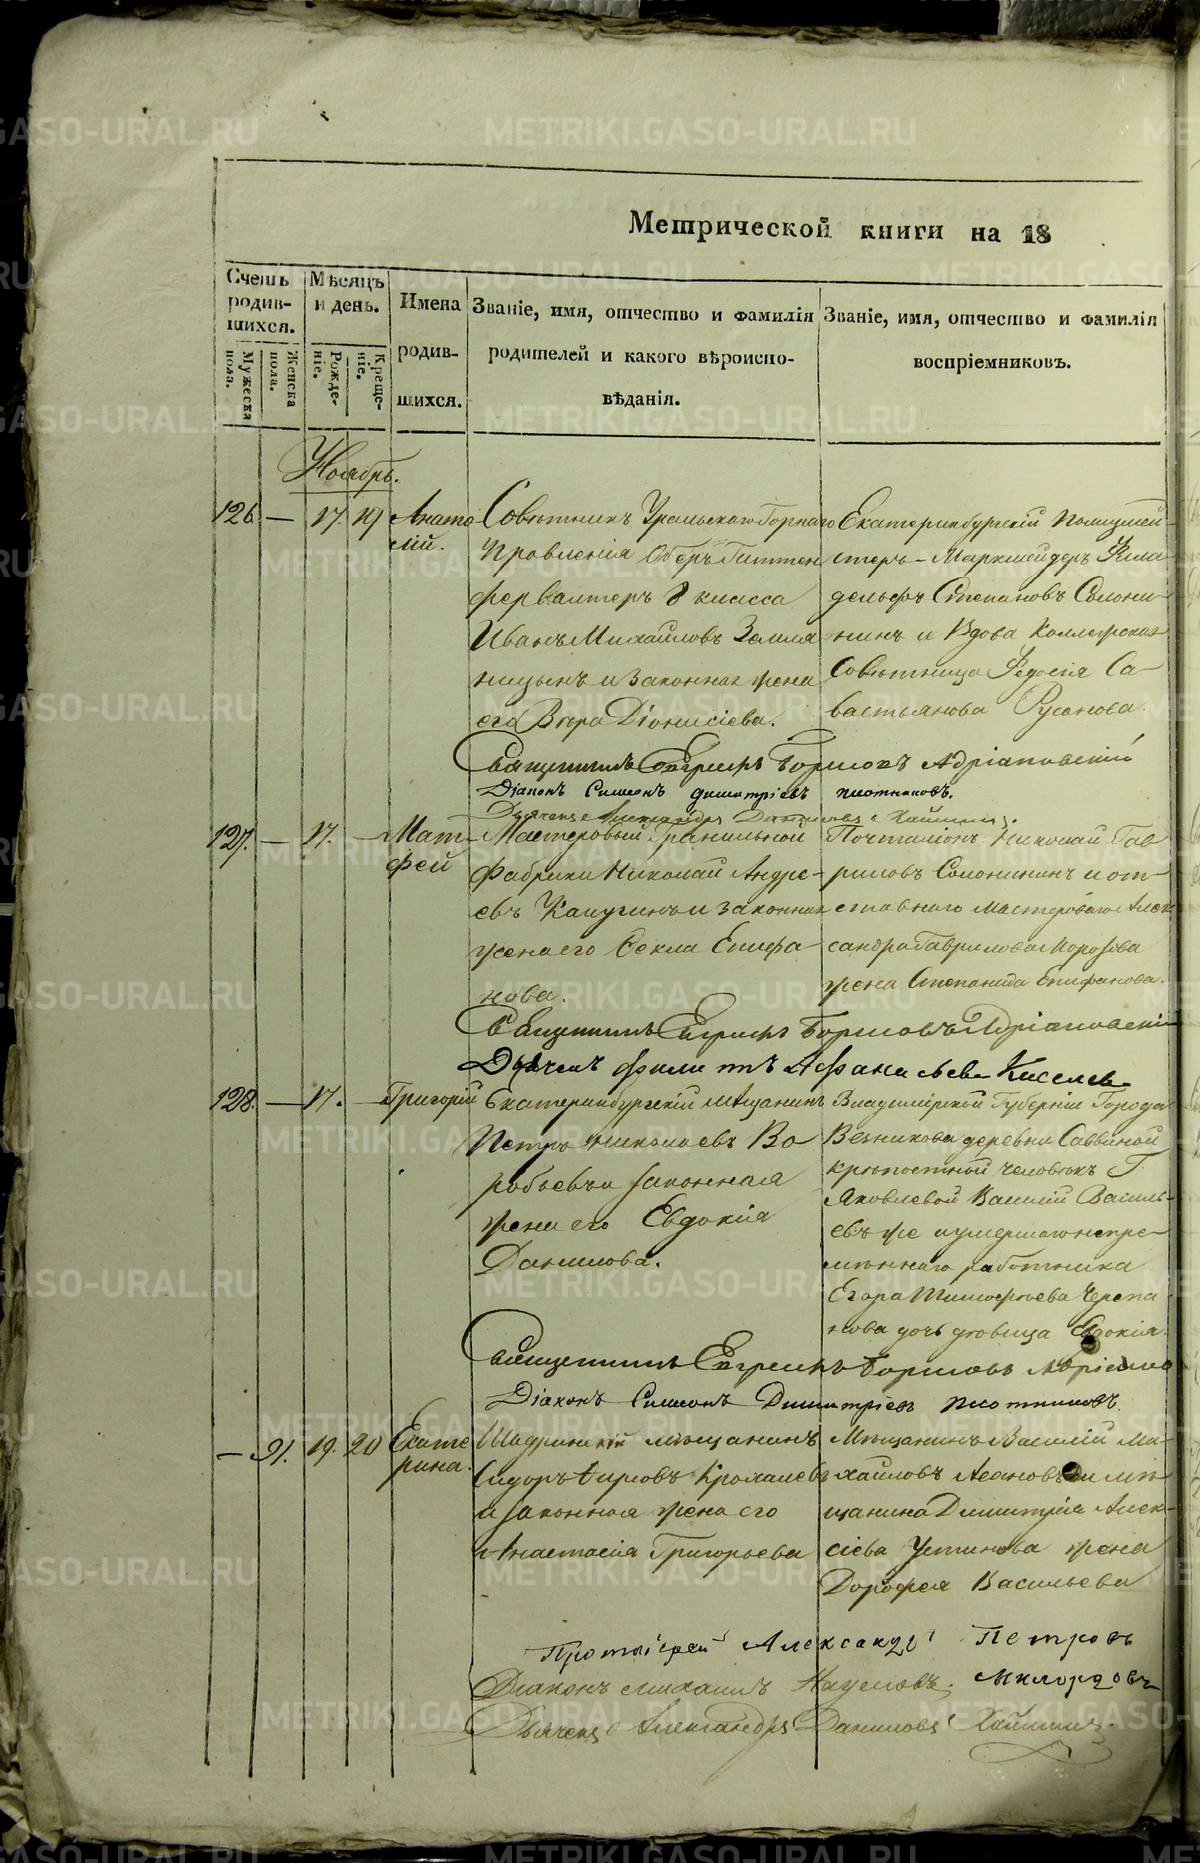 Метрической книги на 18
Счетъ родив-шихся.
Мужеска пола.
Женска пола.
Мѣсяцъ и день.
Рожде-ніе.
Креще-ніе.
Имена родив-шихся.
Званіе, имя, отчество и фамилія родителей и какого вѣроиспо-вѣданія.
Званіе, имя, отчество и фамилія воспріемниковъ.
Ноябрь.
126. — 17. 19 Анато-лій.
Совѣтникъ Уральскаго Горнаго
Правленія Оберъ Гиттен
фервалтеръ 8 класса
Иванъ Михайловъ Земля
ницынъ и законная жена
его Вѣра Діонисіева.
Екатеринбургскій Полицмей-
стеръ-Маркшейдеръ Фила
дельфъ Степановъ Солони-
нинъ и Вдова Коллежская
Совѣтница Федосія Са-
вастьянова Русанова.
Священникъ Борисовъ Адріановскій
Діаконъ Симеонъ Димитріевъ Плотниковъ.
Дьячекъ Александръ Даниловъ
127. — 17. — Мат-фей
Мастеровый Гранильной
Фабрики Николай Андре-
евъ Калугинъ и законная
жена его Фекла Епифа-
нова.
Почталіонъ Николай Гав
риловъ Солонининъ и от-
ставнаго мастероваго Алек
сандра Гаврилова Морозова
жена Степанида Епифанова.
Священникъ Борисовъ Адріановскій
Дьячекъ Филиппъ Афанасьевъ Киселевъ
128. — 17. — Григорій
Екатеринбургскій мѣщанинъ
Петръ Николаевъ Во
робьевъ и законная
жена его Евдокія
Данилова.
Владимірской Губерніи Города
Везникова деревни Саввиной
крѣпостной человѣкъ Г.
Яковлевой Василій Василь-
евъ же и умершаго непре-
мѣннаго работника
Егора Тимофѣева Черепа
нова дочь дѣвица Евдокія.
Священникъ Борисовъ
Діаконъ Симеонъ Димитріевъ Плотниковъ.
— 91. 19. 20 Екате рина.
Шадринскій мѣщанинъ
Сидоръ Кириловъ Крохалевъ
и законная жена его
Анастасія Григорьева
Мѣщанинъ Василій Ми-
хайловъ и мѣ-
щанина Димитрія Алек-
сіева Устинова жена
Дорофея Васильева
Протоіерей Александръ Петровъ
Діаконъ Михаилъ
Дьячекъ Александръ Даниловъ
METRIKI.GASO-URAL.RU